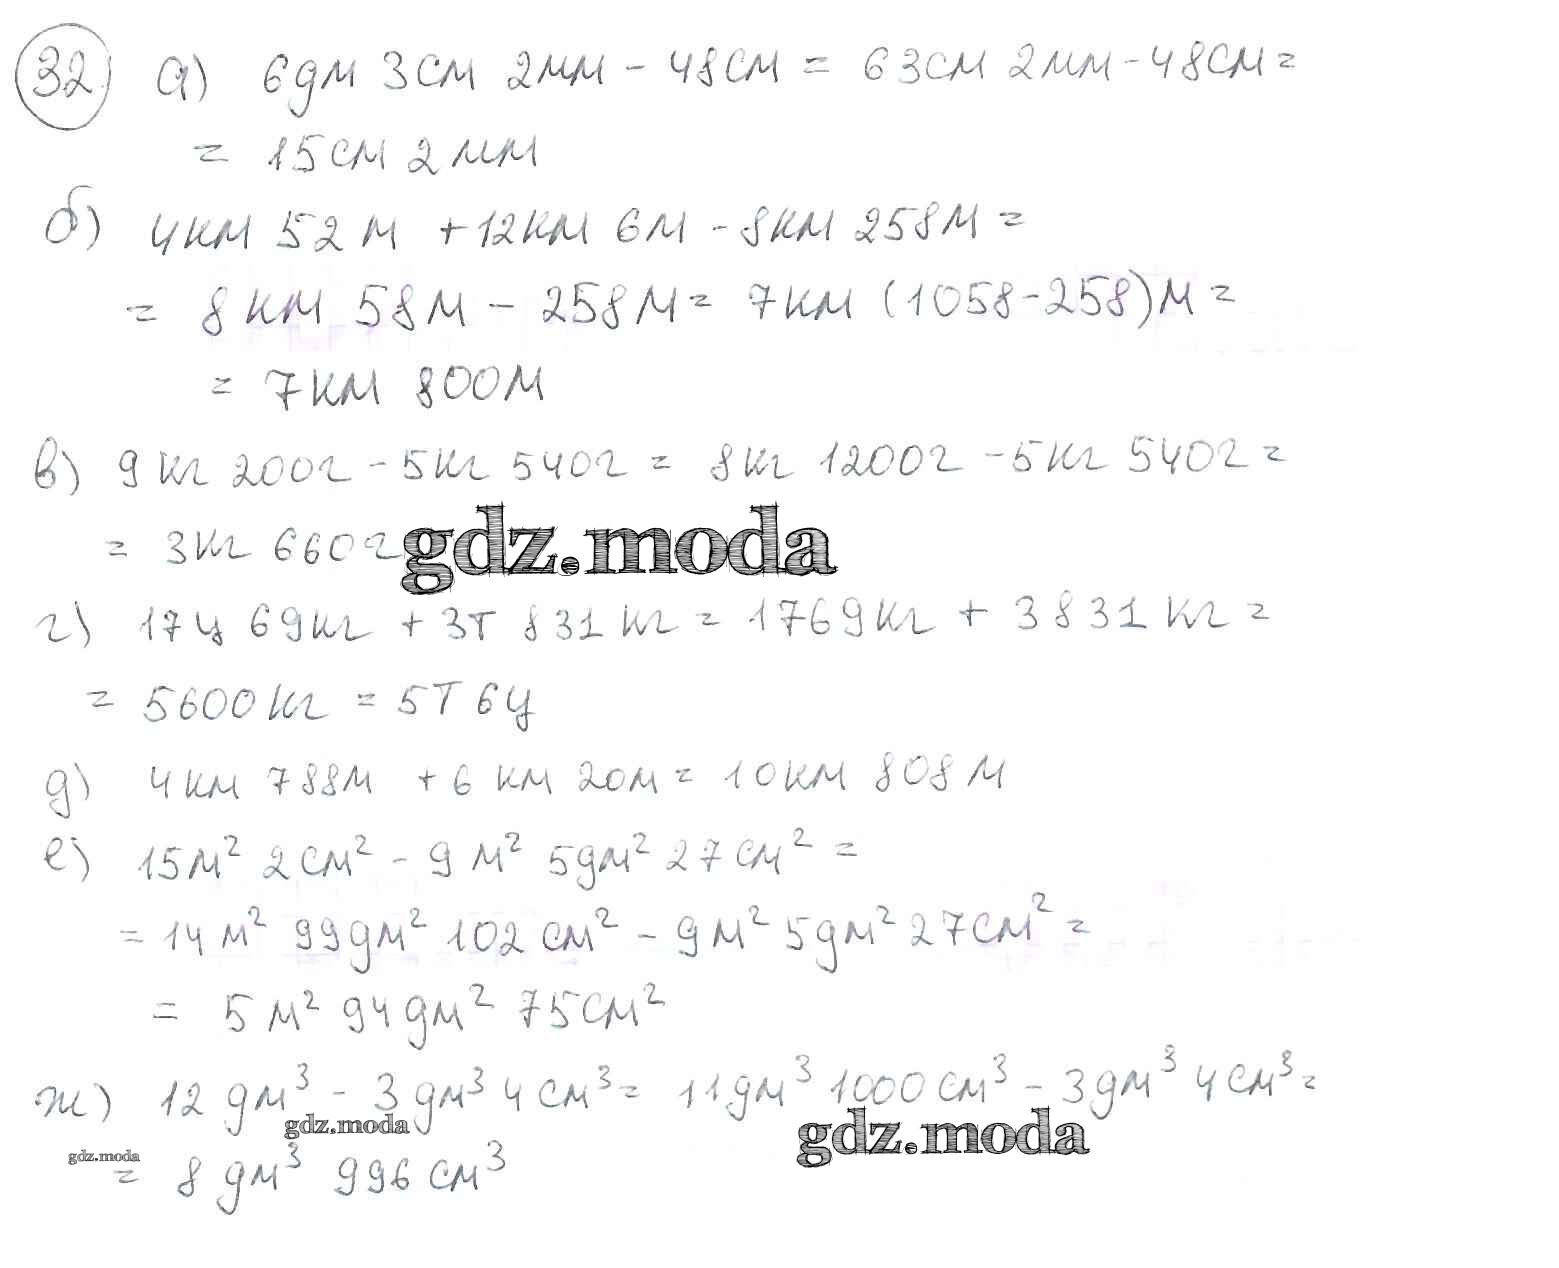 32 а) 6дм 3см 2мм - 48см = 63см 2мм - 48см =
= 15см 2мм
б) 4км 52м + 12км 6м - 8км 258м =
= 8км 58м - 258м = 7км (1058-258)м =
= 7км 800м
в) 9кг 200г - 5кг 540г = 8кг 1200г - 5кг 540г =
= 3кг 660г
gdz.moda
г) 17ц 69кг + 3т 831кг = 1769кг + 3831кг =
= 5600кг = 5т 6ц
д) 4км 788м + 6км 20м = 10км 808м
е) 15м² 2см² - 9м² 5дм² 27см² =
= 14м² 99дм² 102см² - 9м² 5дм² 27см² =
= 5м² 94дм² 75см²
ж) 12дм³ - 3дм³ 4см³ = 11дм³ 1000см³ - 3дм³ 4см³ =
gdz.moda
gdz.moda
gdz.moda
= 8дм³ 996см³